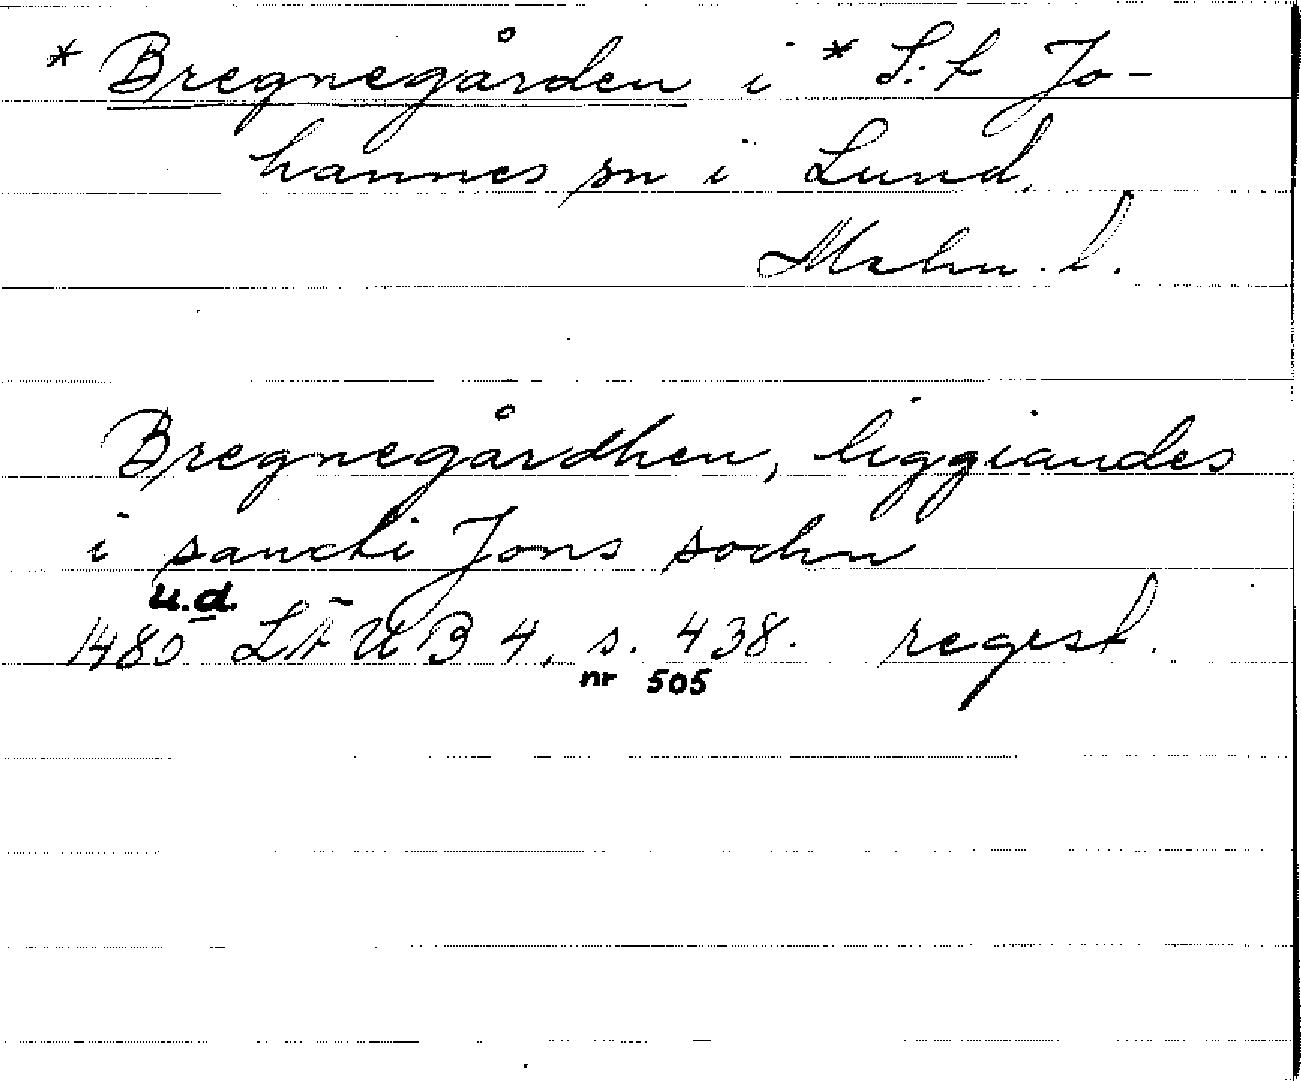 * Bregnegården i * S:t Jo-
hannes sn i Lund,
Mehn. l.
Bregnegårdhen, liggiandes
i sancti Jons sochn
u.d.
1480 LÄUB 4, s. 438. regest.
nr 505